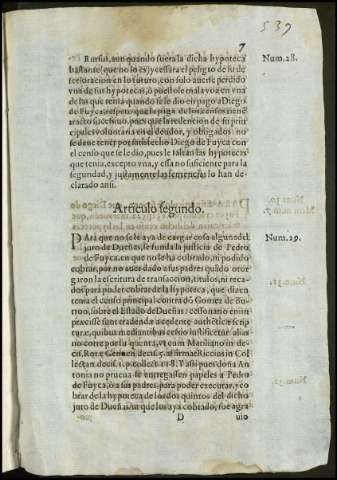 539
7
Rursus, aun quando fuera la dicha hypoteca Num. 28.
bastante (que no lo es) y cessara el peligro de su deterioracion
en lo futuro, con solo auerse perdido
vna de sus hypotecas, ò puesto le mala voz en vna
de las que tenia quando se le dio en pago a Diego
de Fuyca, respeto que la paga de los censos
tracto successiuo, pues que la redencion de su principal
es voluntaria en el deudor, y obligados no
se deue tener por satisfecho Diego de Fuyca con
el censo que se le dio, pues le faltan las hypotecas
que tenia, excepto vna, y essa no suficiente para la
segundad, y juntamente las sentencias lo han declarado
ansi.
Articulo segundo.
PAra que no se le aya de cargar cosa alguna del Num. 29.
juro de Dueñas, se funda la justicia de Pedro
de Fuyca, en que no se ha cobrado, ni podido
cobrar, por no auer dado a sus padres quando
otorgaron la escritura de transaccion, titulos, ni recados
para poder cobrar de la hypoteca, que dizen
tenia el censo principal contra dõ Gomez de
sobre el Estado de Dueñas: cessonario enim
præcisè sunt tradendæ accedente authentic scripturæ,
quibus mediantibus cessio iustificatur: alias
no corre por su quenta, vt cum Matiliano in
decis. Rotæ Genuen. decis. 5. affirmat Riccius in
Collectan. decis. 1. p. collect. 118. Y assi pues doña
Antonia no prueua se entregassen papeles a Pedro
de Fuyca, ò a sus padres, para poder executar, y cobrar
de la hypoteca de los dos quintos del dicho
juro de Dueñas, ni que los aya cobrado, fue agra-
D uio